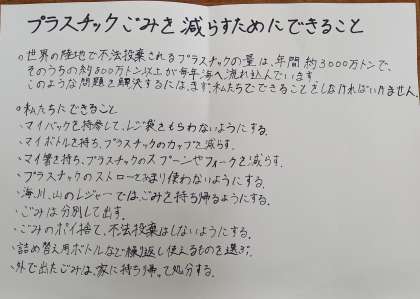 プラスチックごみを減らすためにできること
○世界の陸地で不法投棄されるプラスチックの量は、年間約3000万トンで、
そのうちの約800万トン以上が毎年海へ流れ込んでいます。
このような問題を解決するには、まず、私たちでできることをしなければいけません。
○私たちにできること
・マイバックを持参して、レジ袋をもらわないようにする。
・マイボトルを持ち、プラスチックのカップを減らす。
・マイ箸を持ち、プラスチックのスプーンやフォークを減らす。
・プラスチックのストローをあまり使わないようにする。
・海、川、山のレジャーでは、ごみを持ち帰るようにする。
・ごみは分別して出す。
・ごみのポイ捨て、不法投棄はしないようにする。
・詰め替え用ボトルなど繰り返し使えるものを選ぶ。
・外で出たごみは、家に持ち帰って処分する。